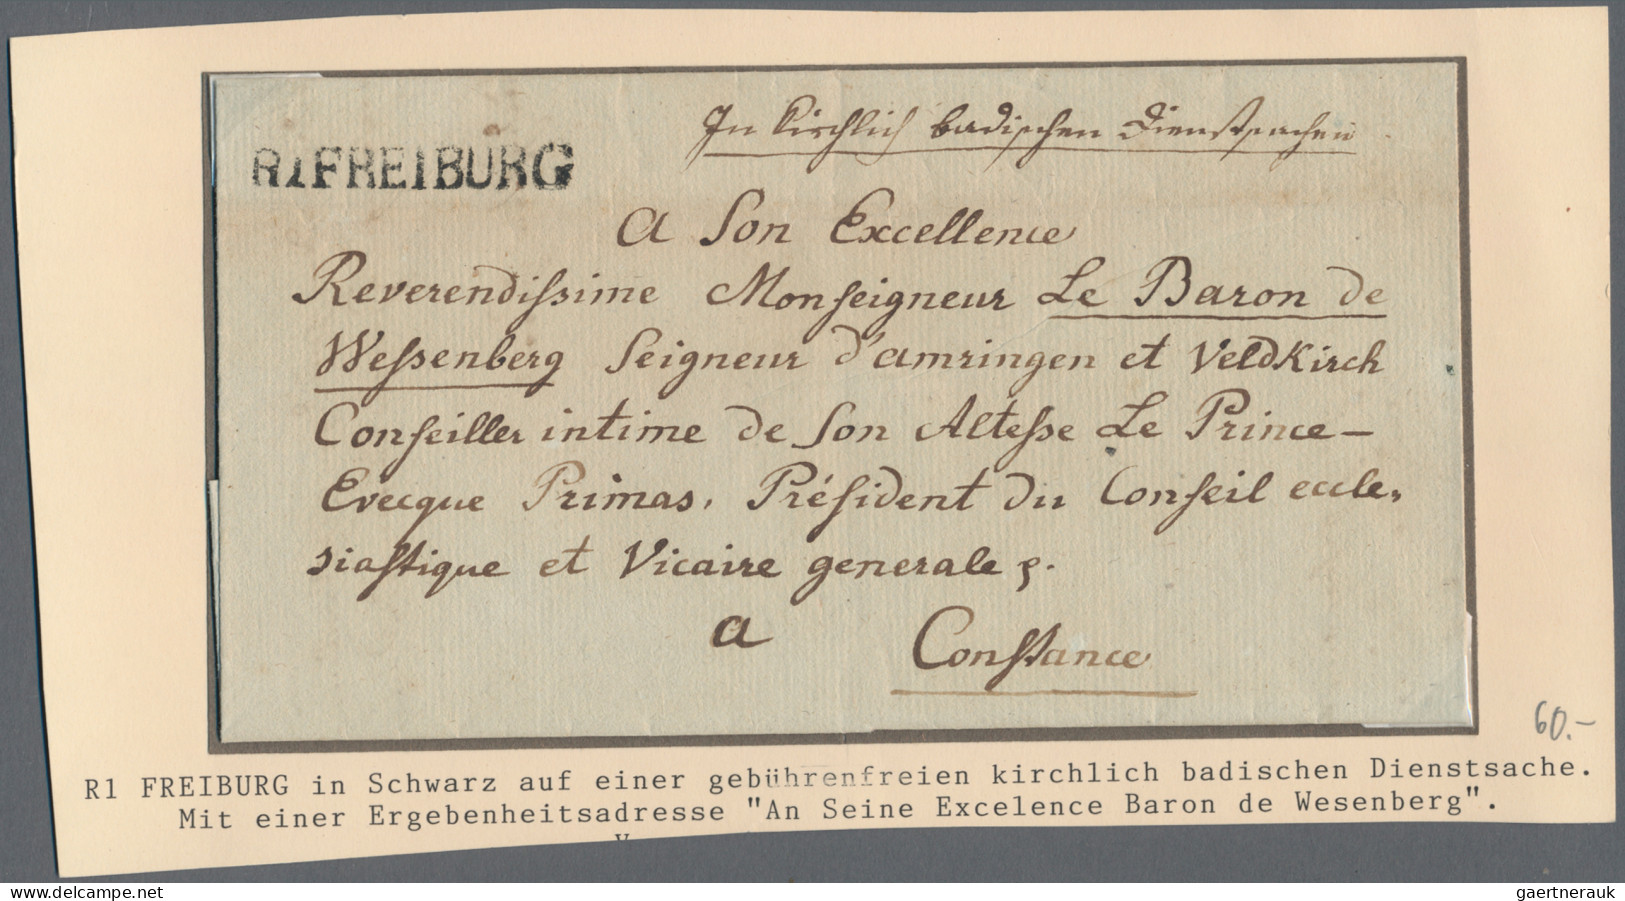 In kirchlich badischen Dienstsachen
R1 FREIBURG
a Son Excellence
Reverendissime Monseigneur Le Baron de
Wessenberg Seigneur d'amringen et Veldkirch
Conseiller intime de Son Altesse Le Prince-
Evecque Primas, Président du Conseil eccle„
siastique et Vicaire generale
a Constance
60.-
R1 FREIBURG in Schwarz auf einer gebührenfreien kirchlich badischen Dienstsache.
Mit einer Ergebenheitsadresse "An Seine Excelence Baron de Wesenberg".
delcampe.net
gaertnerauk